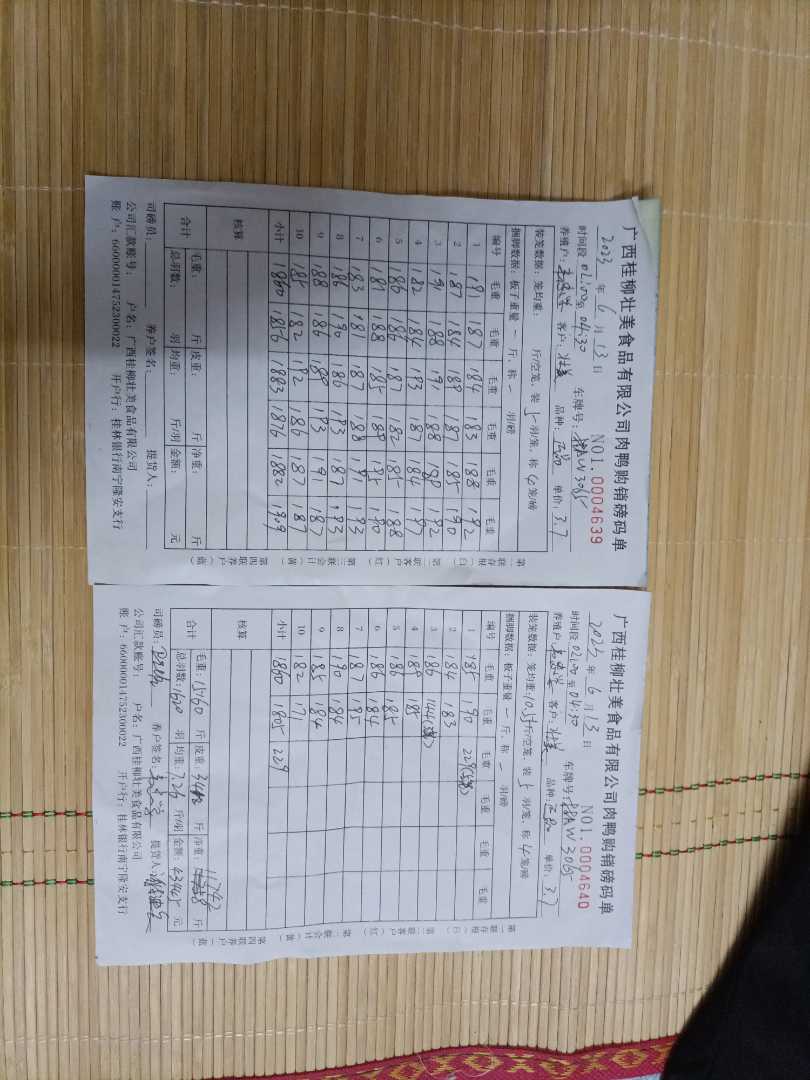 广西桂柳壮美食品有限公司肉鸭购销磅码单
NO1.0004639
2023 年 6 月 13 日
时间段 02:00 至 04:30 车牌号: W3065
养殖户: 客户: 壮美 品种: 单价: 3.7
装笼数据:笼均重: 斤/空笼、装 5 羽/笼、称 4 笼/磅
捆脚数据:板子重量 一 斤、称 一 羽/磅
编号 毛重 毛重 毛重 毛重 毛重 毛重
1 191 187 184 183 188 192
2 187 184 189 187 185 190
3 191 188 191 188 190 192
4 182 184 193 187 184 197
5 186 186 187 182 185 188
6 187 188 185 189 185 190
7 183 181 187 188 191 193
8 186 190 186 193 187 193
9 188 186 189 193 191 187
10 185 182 192 186 187 187
小计 1860 1856 1883 1876 1882 1909
核算
合计 毛重: 斤 皮重: 斤 净重: 斤
总羽数: 羽 均重: 斤/羽 金额: 元
司磅员: 养户签名: 提货人:
公司汇款账号: 户名:广西桂柳壮美食品有限公司
账 户:660000014752300022 开户行:桂林银行南宁隆安支行
第一联存根(白) 第二联客户(红) 第三联会计(黄) 第四联养户(蓝)
广西桂柳壮美食品有限公司肉鸭购销磅码单
NO1.0004640
2023 年 6 月 13 日
时间段 02:00 至 04:30 车牌号: W3065
养殖户: 客户: 壮美 品种: 单价: 3.7
装笼数据:笼均重: 斤/空笼、装 5 羽/笼、称 4 笼/磅
捆脚数据:板子重量 一 斤、称 一 羽/磅
编号 毛重 毛重 毛重 毛重 毛重 毛重
1 185 190 229(5笼)
2 184 183
3 186 144(3笼)
4 189 185
5 186 185
6 186 184
7 187 195
8 190 184
9 185 184
10 182 171
小计 1860 1805 229
核算
合计 毛重: 15160 斤 皮重: 斤 净重: 11742 斤
总羽数: 1620 羽 均重: 7.25 斤/羽 金额: 43445 元
司磅员: 养户签名: 提货人:
公司汇款账号: 户名:广西桂柳壮美食品有限公司
账 户:660000014752300022 开户行:桂林银行南宁隆安支行
第一联存根(白) 第二联客户(红) 第三联会计(黄) 第四联养户(蓝)